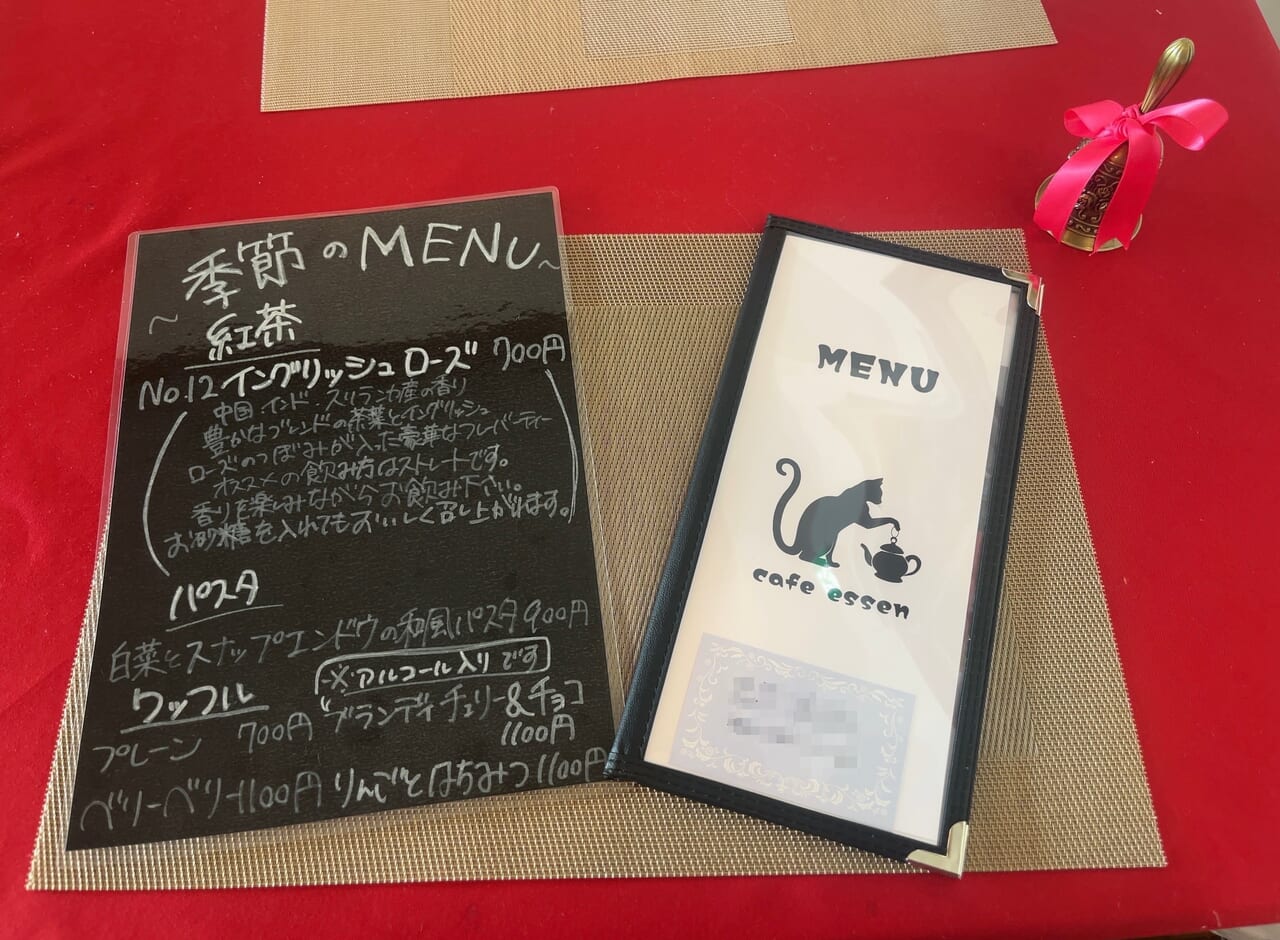 ～季節のMENU～
紅茶
No.12 イングリッシュローズ 700円
中国、インド、スリランカ産の香り
豊かなブレンドの茶葉とイングリッシュ
ローズのつぼみが入った豪華なフレーバーティー
オススメの飲み方はストレートです。
香りを楽しみながらお飲み下さい。
お砂糖を入れてもおいしく召し上がれます。
パスタ
白菜とスナップエンドウの和風パスタ 900円
ワッフル
※アルコール入りです
プレーン 700円
ブランディチェリー&チョコ
1100円
ベリーベリー 1100円
りんごとはちみつ 1100円
MENU
cafe essen